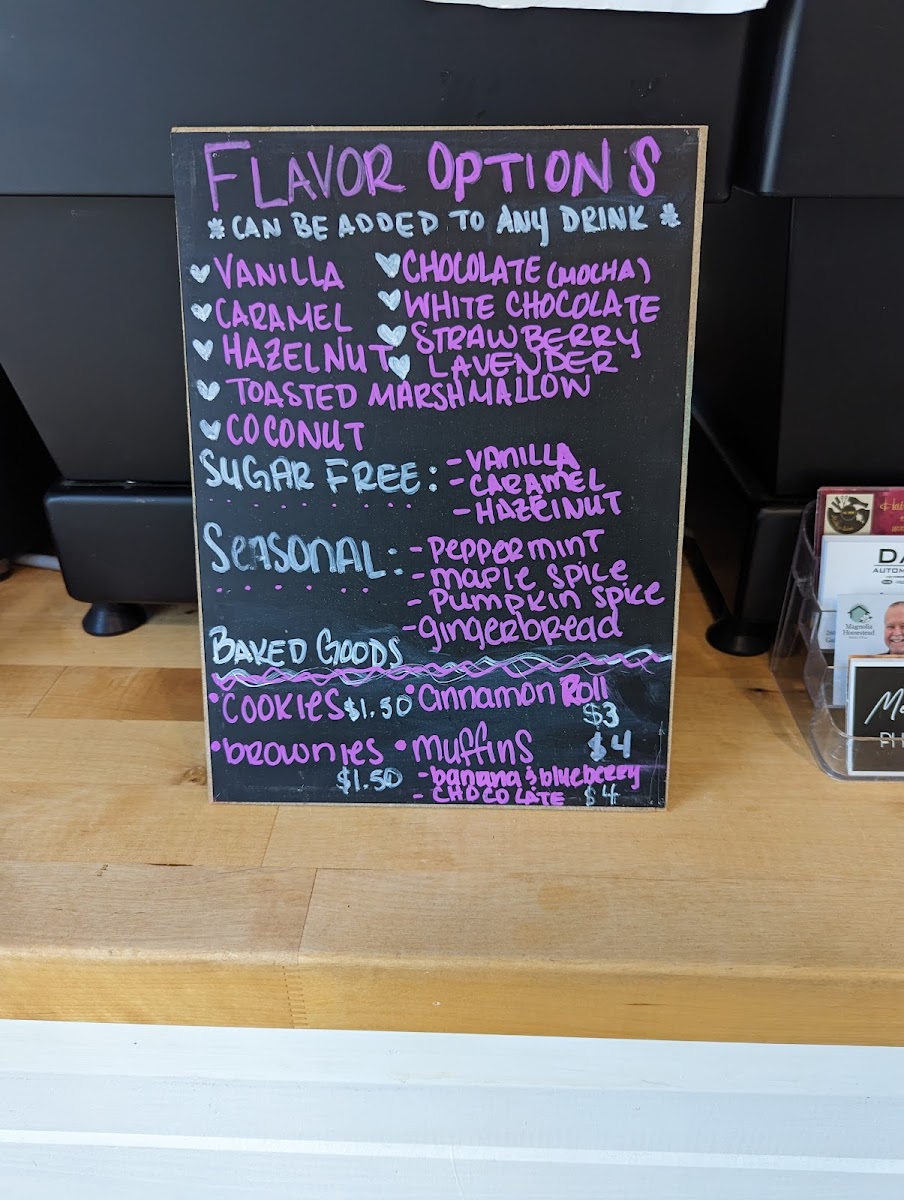 FLAVOR OPTIONS
*CAN BE ADDED TO ANY DRINK*
VANILLA
CARAMEL
HAZELNUT
TOASTED MARSHMALLOW
COCONUT
CHOCOLATE (MOCHA)
WHITE CHOCOLATE
STRAWBERRY
LAVENDER
SUGAR FREE: - VANILLA
- CARAMEL
- HAZELNUT
SEASONAL: - PEPPERMINT
- MAPLE SPICE
- PUMPKIN SPICE
- gingerbread
BAKED GOODS
• COOKIES $1.50 • Cinnamon Roll
$3
• brownies • muffins $4
$1.50 - banana & blueberry
- CHOCOLATE $4
DA
AUTOM
Magnolia
Homestead